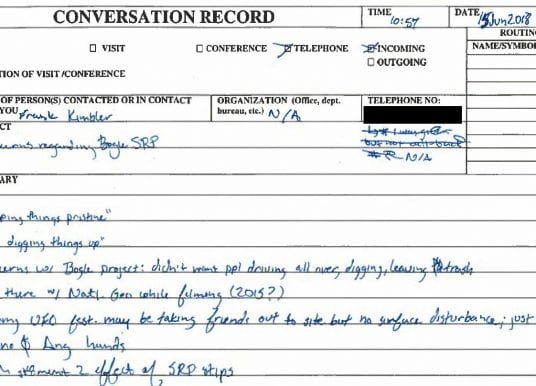 CONVERSATION RECORD
TIME
10:57
DATE
15 Jun 2018
ROUTIN
NAME/SYMBO
VISIT
CONFERENCE
TELEPHONE
INCOMING
OUTGOING
TION OF VISIT /CONFERENCE
OF PERSON(S) CONTACTED OR IN CONTACT
YOU Frank Kimbler
ORGANIZATION (Office, dept.
bureau, etc.) N/A
TELEPHONE NO:
but not call-back
N/A
CT
erns regarding Bogle SRP
ARY
ping things pristine"
digging things up"
erns w/ Bogle project: didn't want ppl driving all over, digging, leaving trash
there w/ Natl. Geo while filming (2015?)
UFO fest. may be taking friends out to site but no surface disturbance; just
& Aug hunds
2 effect of SRP stips